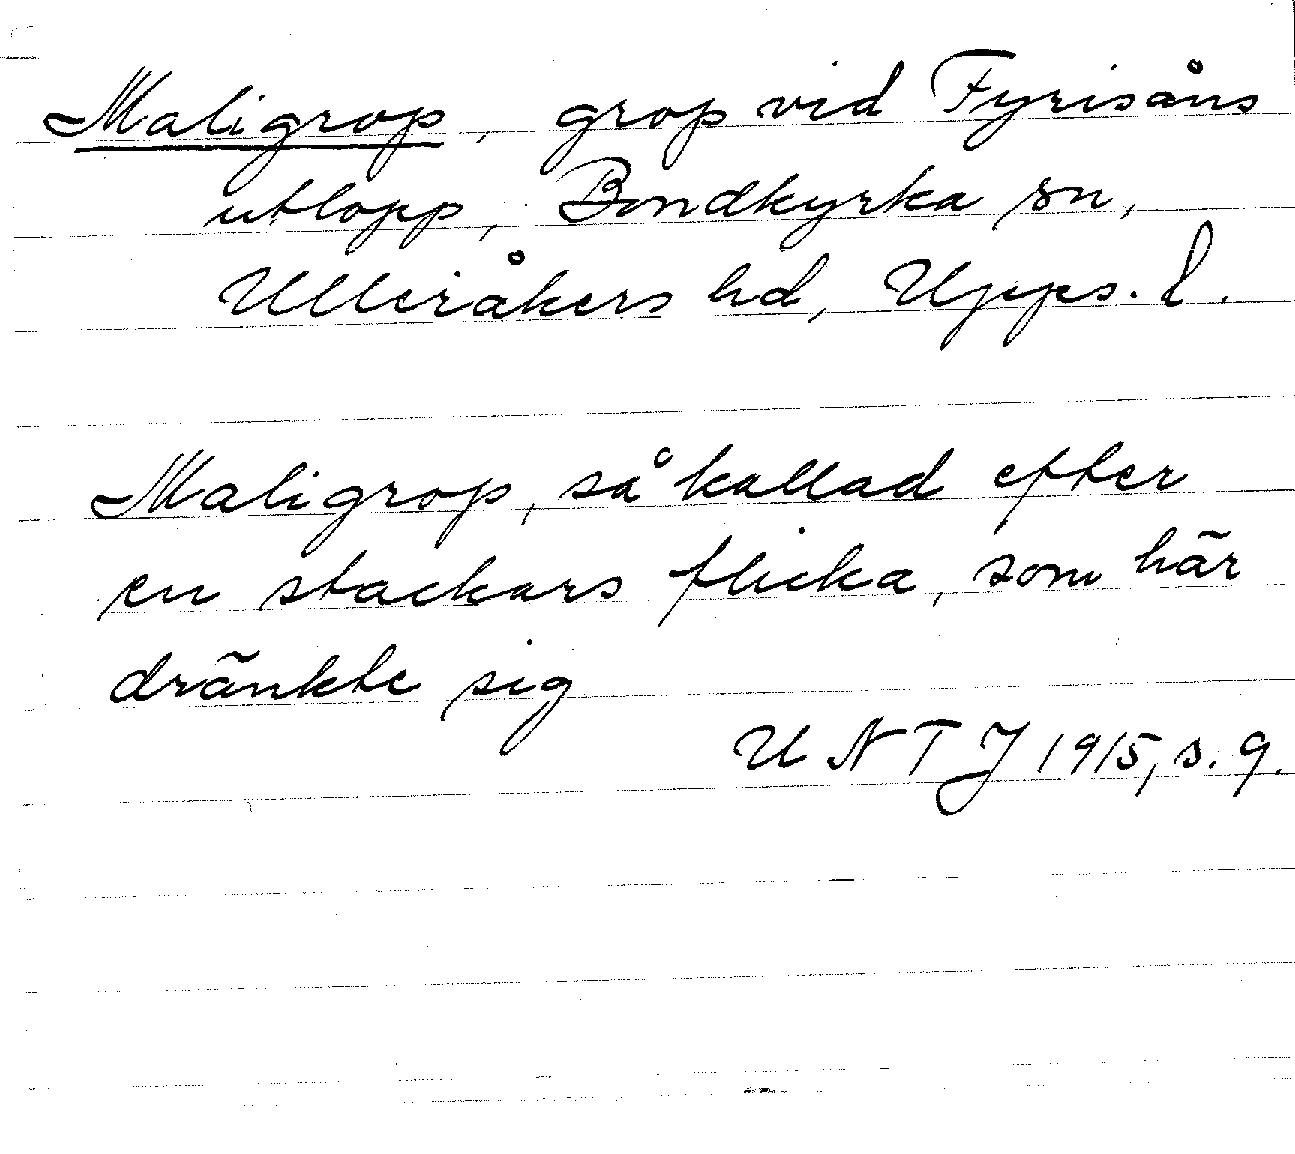 Maligrop, grop vid Fyrisåns
utlopp, Bondkyrka sn,
Ulleråkers hd, Upps. l.
Maligrop, så kallad efter
en stackars flicka, som här
dränkte sig
UNTJ 1915, s. 9.